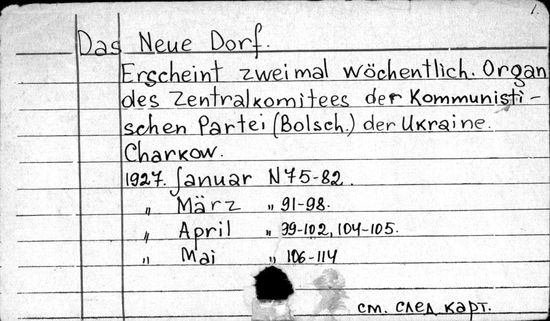 1.
Das Neue Dorf.
Erscheint zweimal wöchentlich. Organ
des Zentralkomitees der Kommunisti-
schen Partei (Bolsch.) der Ukraine.
Charkow.
1927. Januar N 75-82.
„ März „ 91-98.
„ April „ 99-102, 104-105.
„ Mai „ 106-114
см. след карт.